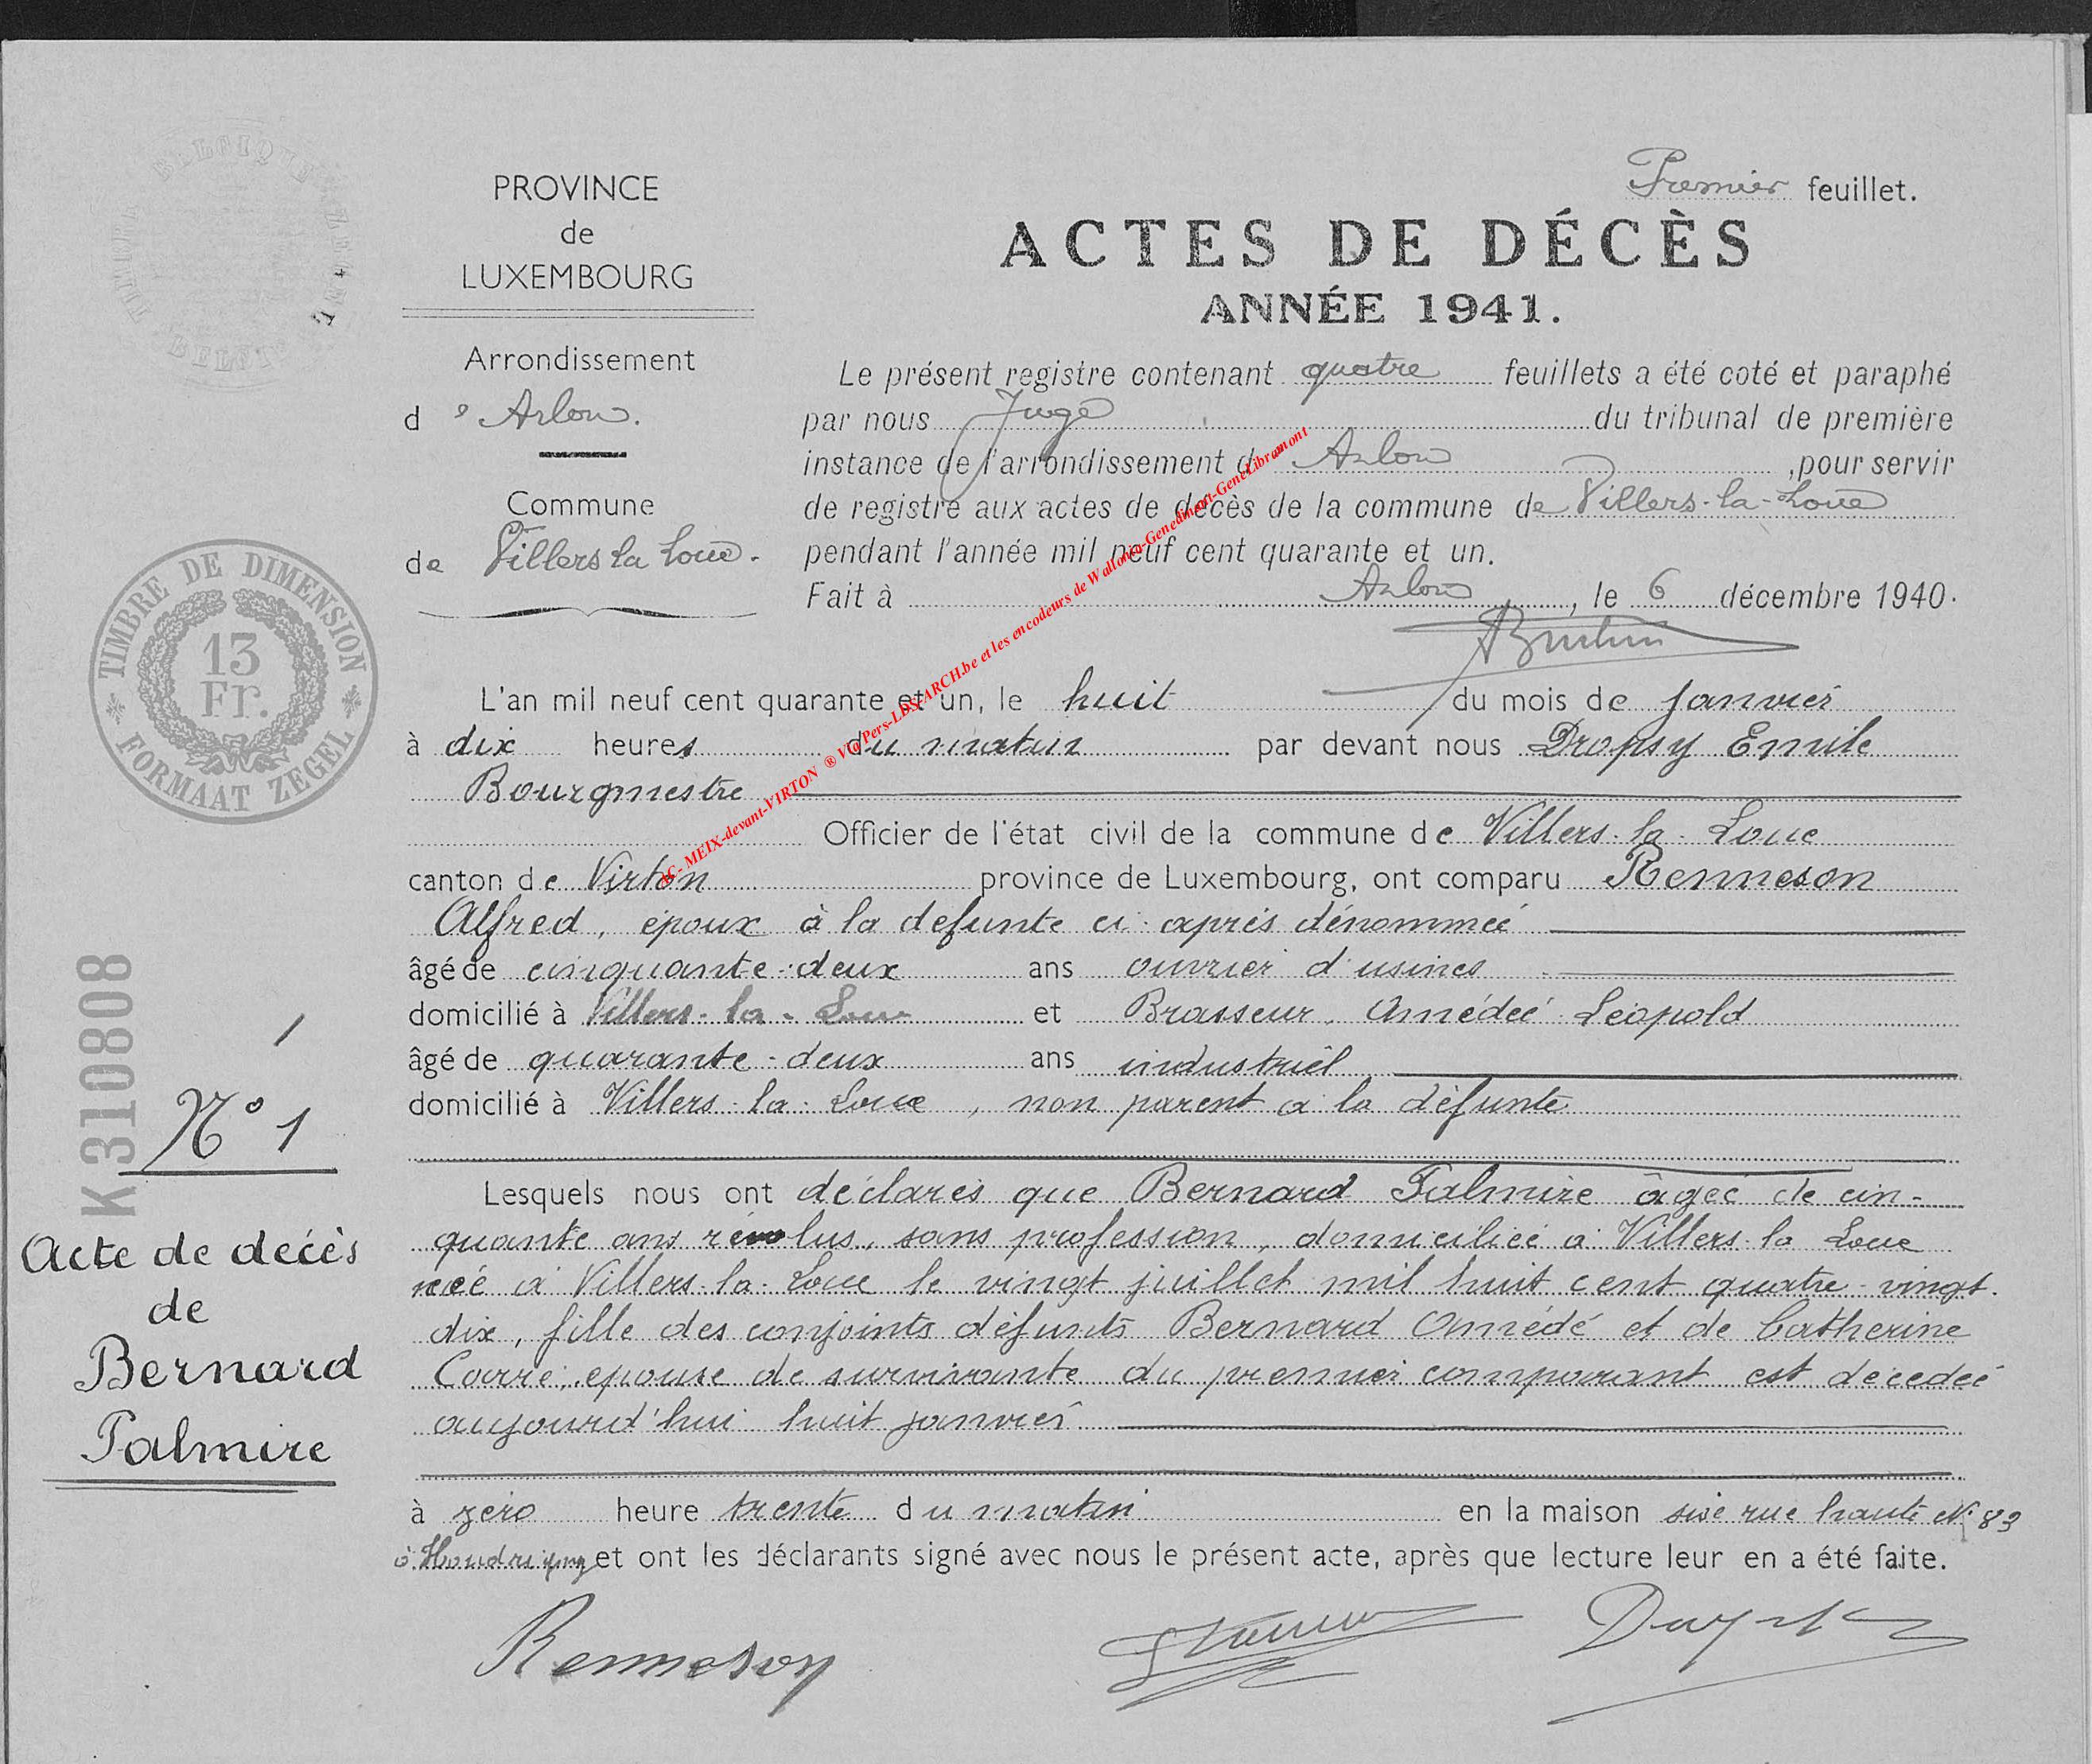 Premier feuillet.
PROVINCE
de
LUXEMBOURG
ACTES DE DÉCÈS
ANNÉE 1941.
Arrondissement
d' Arlon.
Commune
de Villers la Loue.
Le présent registre contenant quatre feuillets a été coté et paraphé
par nous Juge du tribunal de première
instance de l'arrondissement d' Arlon, pour servir
de registre aux actes de décès de la commune de Villers-la-Loue
pendant l'année mil neuf cent quarante et un.
Fait à Arlon, le 6 décembre 1940.
TIMBRE DE DIMENSION
13
Fr.
FORMAAT ZEGEL
AC- MEIX-devant-VIRTON ® Via Pers-LDS-ARCH.be et les encodeurs de Wallonia-Genedinant-GeneLibramont
L'an mil neuf cent quarante et un, le huit du mois de janvier
à dix heures du matin par devant nous Dropsy Emile
Bourgmestre
Officier de l'état civil de la commune de Villers-la-Loue
canton de Virton province de Luxembourg, ont comparu Renneson
Alfred, époux à la défunte ci-après dénommée
âgé de cinquante-deux ans ouvrier d'usines
domicilié à Villers-la-Loue et Brasseur, Amédéé Léopold
âgé de quarante-deux ans industriel
domicilié à Villers-la-Loue, non parent à la défunte
K 310808
1
N° 1
Acte de décès
de
Bernard
Palmire
Lesquels nous ont déclarés que Bernard Palmire âgéé de cin-
quante ans révolus, sans profession, domiciliéé à Villers-la Loue
néé à Villers-la-Loue le vingt juillet mil huit cent quatre-vingt-
dix, fille des conjoints défunts Bernard Amédé et de Catherine
Carré, épouse de survivante du premier comparant est décédéé
aujourd'hui huit janvier
à zéro heure trente du matin en la maison sise rue haute N° 83
à Houdrigny et ont les déclarants signé avec nous le présent acte, après que lecture leur en a été faite.
Renneson